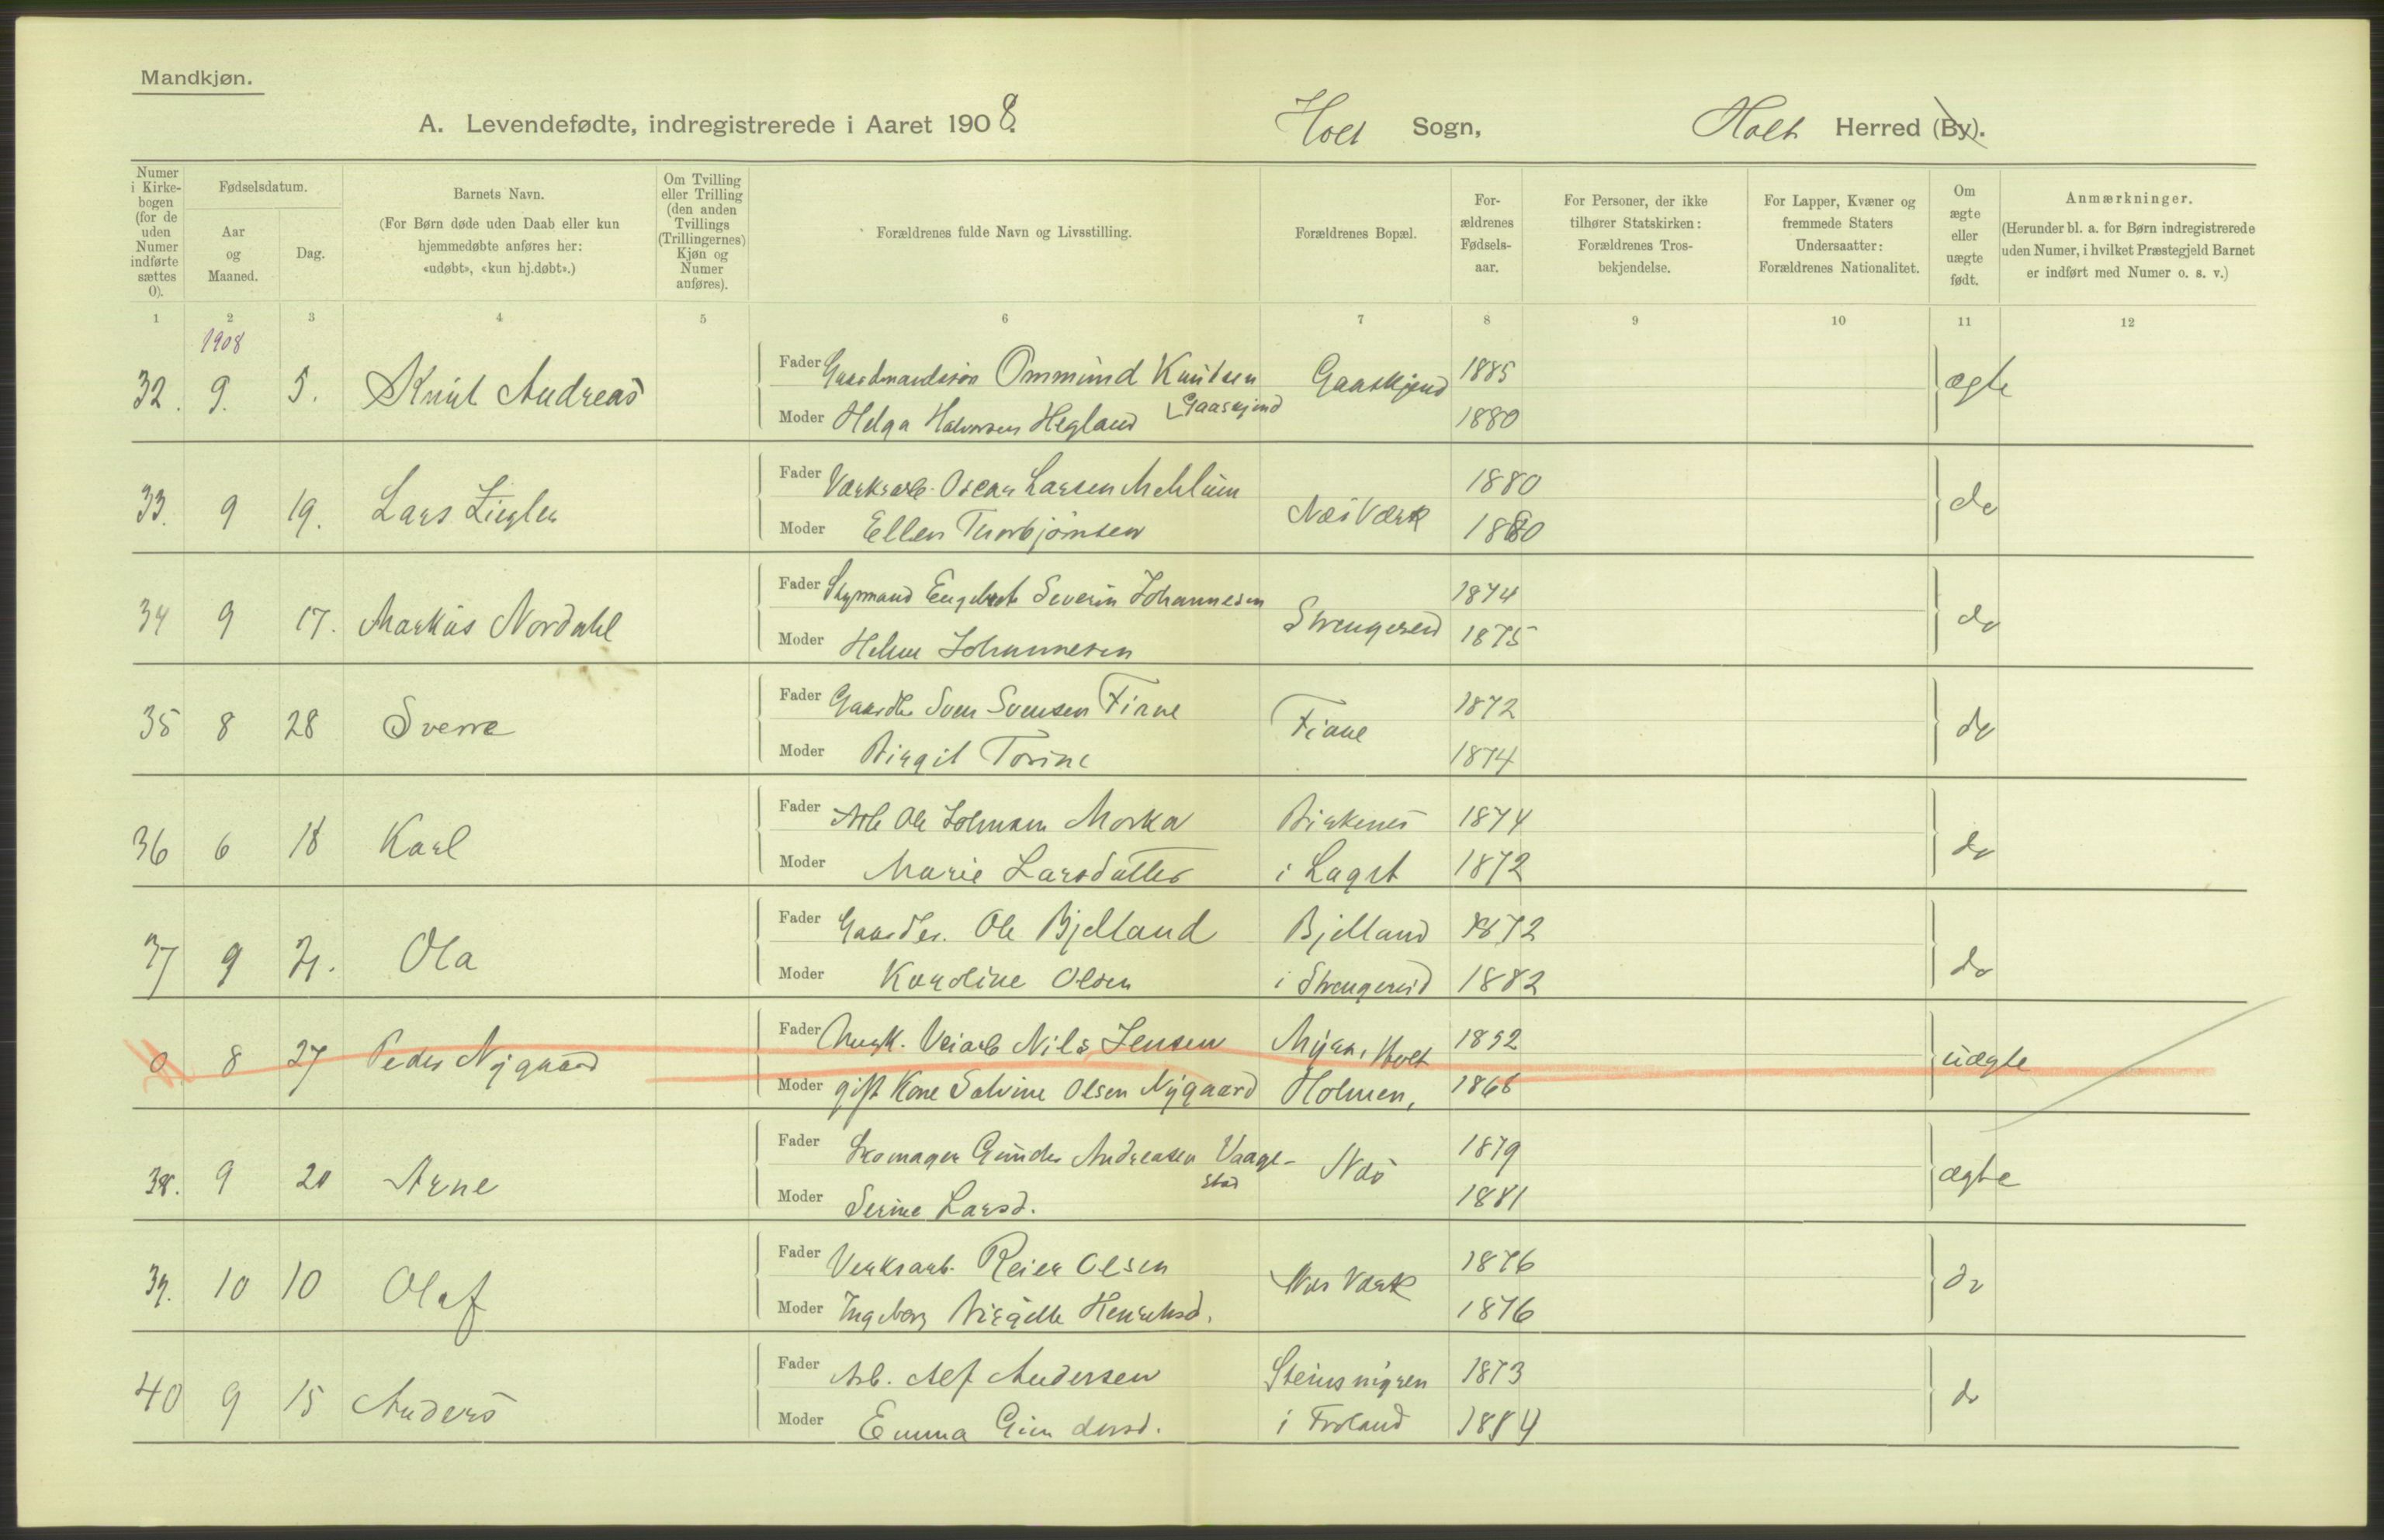 Mandkjøn.
A. Levendefødte, indregistrerede i Aaret 1908.
Holt Sogn,
Holt Herred (By).
Numer i Kirke- bogen (for de uden Numer indførte sættes 0).
Fødselsdatum.
Aar og Maaned.
Dag.
Barnets Navn.
(For Børn døde uden Daab eller kun
hjemmedøbte anføres her:
«udøbt», «kun hj.døbt».)
Om Tvilling eller Trilling (den anden Tvillings (Trillingernes) Kjøn og Numer anføres).
Forældrenes fulde Navn og Livsstilling.
Forældrenes Bopæl.
For- ældrenes Fødsels- aar.
For Personer, der ikke tilhører Statskirken: Forældrenes Tros- bekjendelse.
For Lapper, Kvæner og fremmede Staters Undersaatter: Forældrenes Nationalitet.
Om ægte eller uægte født.
Anmærkninger.
(Herunder bl. a. for Børn indregistrerede
uden Numer, i hvilket Præstegjeld Barnet
er indført med Numer o. s. v.)
1 2 3 4 5 6 7 8 9 10 11 12
1908
32. 9. 5. Knut Andreas
Fader Gaardmandssøn Ommund Knutsen Gaaskjend 1885 ægte
Moder Helga Halvorsen Hegland 1880
33. 9 19. Lars Ziegler
Fader Værksarb. Oscar Larsen Mehlum Næs Værk 1880 do
Moder Ellen Thorbjörnsen 1880
34 9 17. Markus Nordahl
Fader Styrmand Engebret Severin Johannesen Strengereid 1874 do
Moder Helene Johannesen 1875
35 8 28 Sverre
Fader Gaardbr Sven Svensen Fiane Fiane 1872 do
Moder Birgit Torine 1874
36 6 18 Karl
Fader Arb Ole Johnsen Morka Birkenes 1874 do
Moder Marie Larsdatter i Lagst 1872
37 9 21. Ola
Fader Gaardbr. Ole Bjelland Bjelland 1872 do
Moder Karoline Olsen i Strengereid 1882
0 8 27 Peder Nygaard
Fader Veiarb Nils Jensen Myra, Holt 1852 uægte
Moder gift Kone Salvine Olsen Nygaard Holmen, 1868
38. 9 20 Arne
Fader Skomager Gunder Andreasen Vaage- stad Næs 1879 ægte
Moder Serine Larsd. 1881
39. 10 10 Olaf
Fader Verksarb. Reier Olsen Næs Værk 1876 do
Moder Ingeborg Birgitte Henriksd. 1876
40 9 15 Anders
Fader Arb. Alf Andersen 1873 do
Moder Emma Gundersd. i Froland 1884